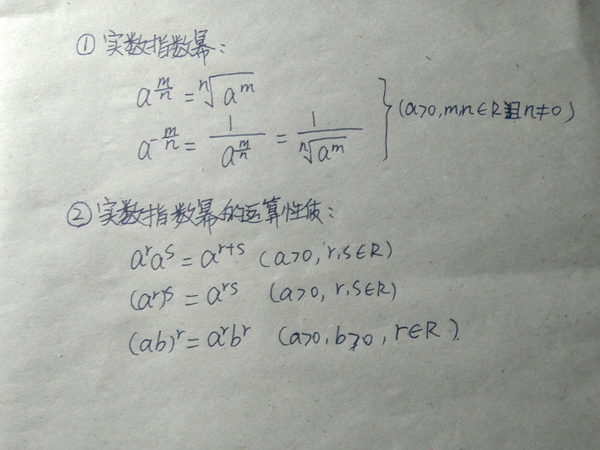 ①实数指数幂:
a^{\frac{m}{n}} = \sqrt[n]{a^m}
a^{-\frac{m}{n}} = \frac{1}{a^{\frac{m}{n}}} = \frac{1}{\sqrt[n]{a^m}}
(a>0, m,n∈R且n≠0)
②实数指数幂的运算性质:
a^r a^s = a^{r+s} (a>0, r,s∈R)
(a^r)^s = a^{rs} (a>0, r,s∈R)
(ab)^r = a^r b^r (a>0, b>0, r∈R)